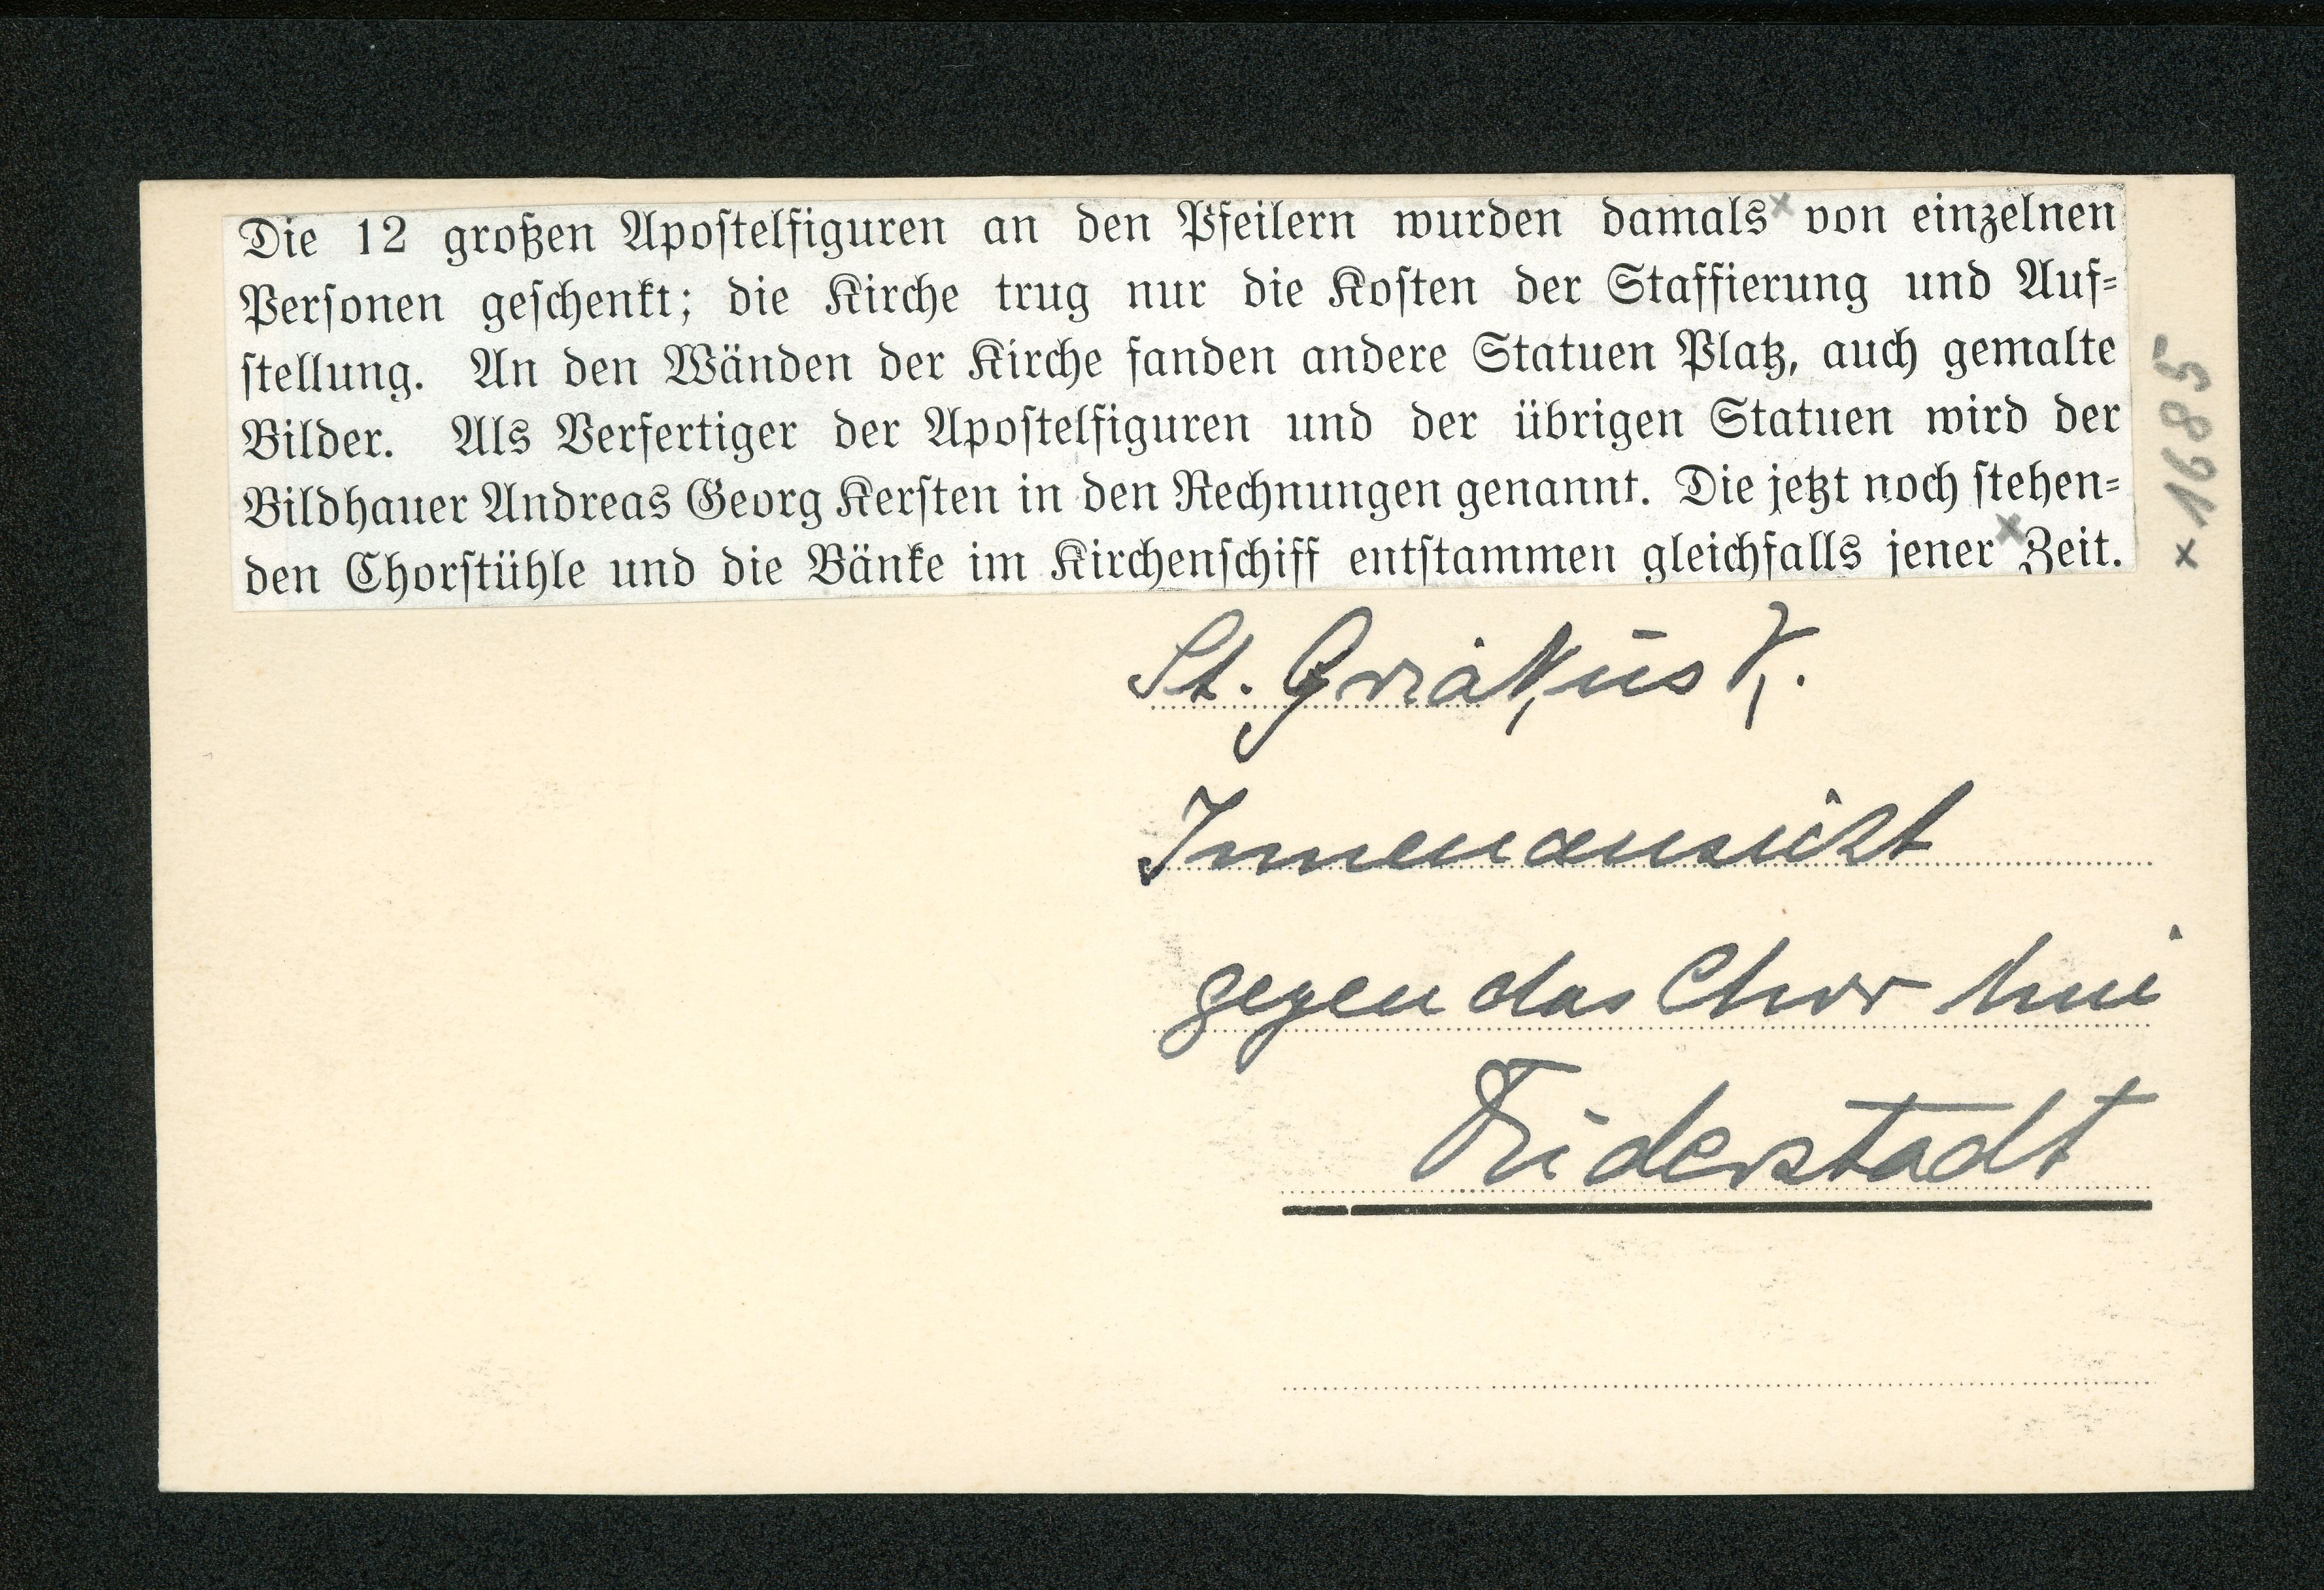 Die 12 großen Apostelfiguren an den Pfeilern wurden damals x von einzelnen
Personen geschenkt; die Kirche trug nur die Kosten der Staffierung und Auf-
stellung. An den Wänden der Kirche fanden andere Statuen Platz, auch gemalte
Bilder. Als Verfertiger der Apostelfiguren und der übrigen Statuen wird der
Bildhauer Andreas Georg Kersten in den Rechnungen genannt. Die jetzt noch stehen-
den Chorstühle und die Bänke im Kirchenschiff entstammen gleichfalls jener x Zeit.
x 1685
St. Cyriakus K.
Innenansicht
gegen das Chor hin
Duderstadt